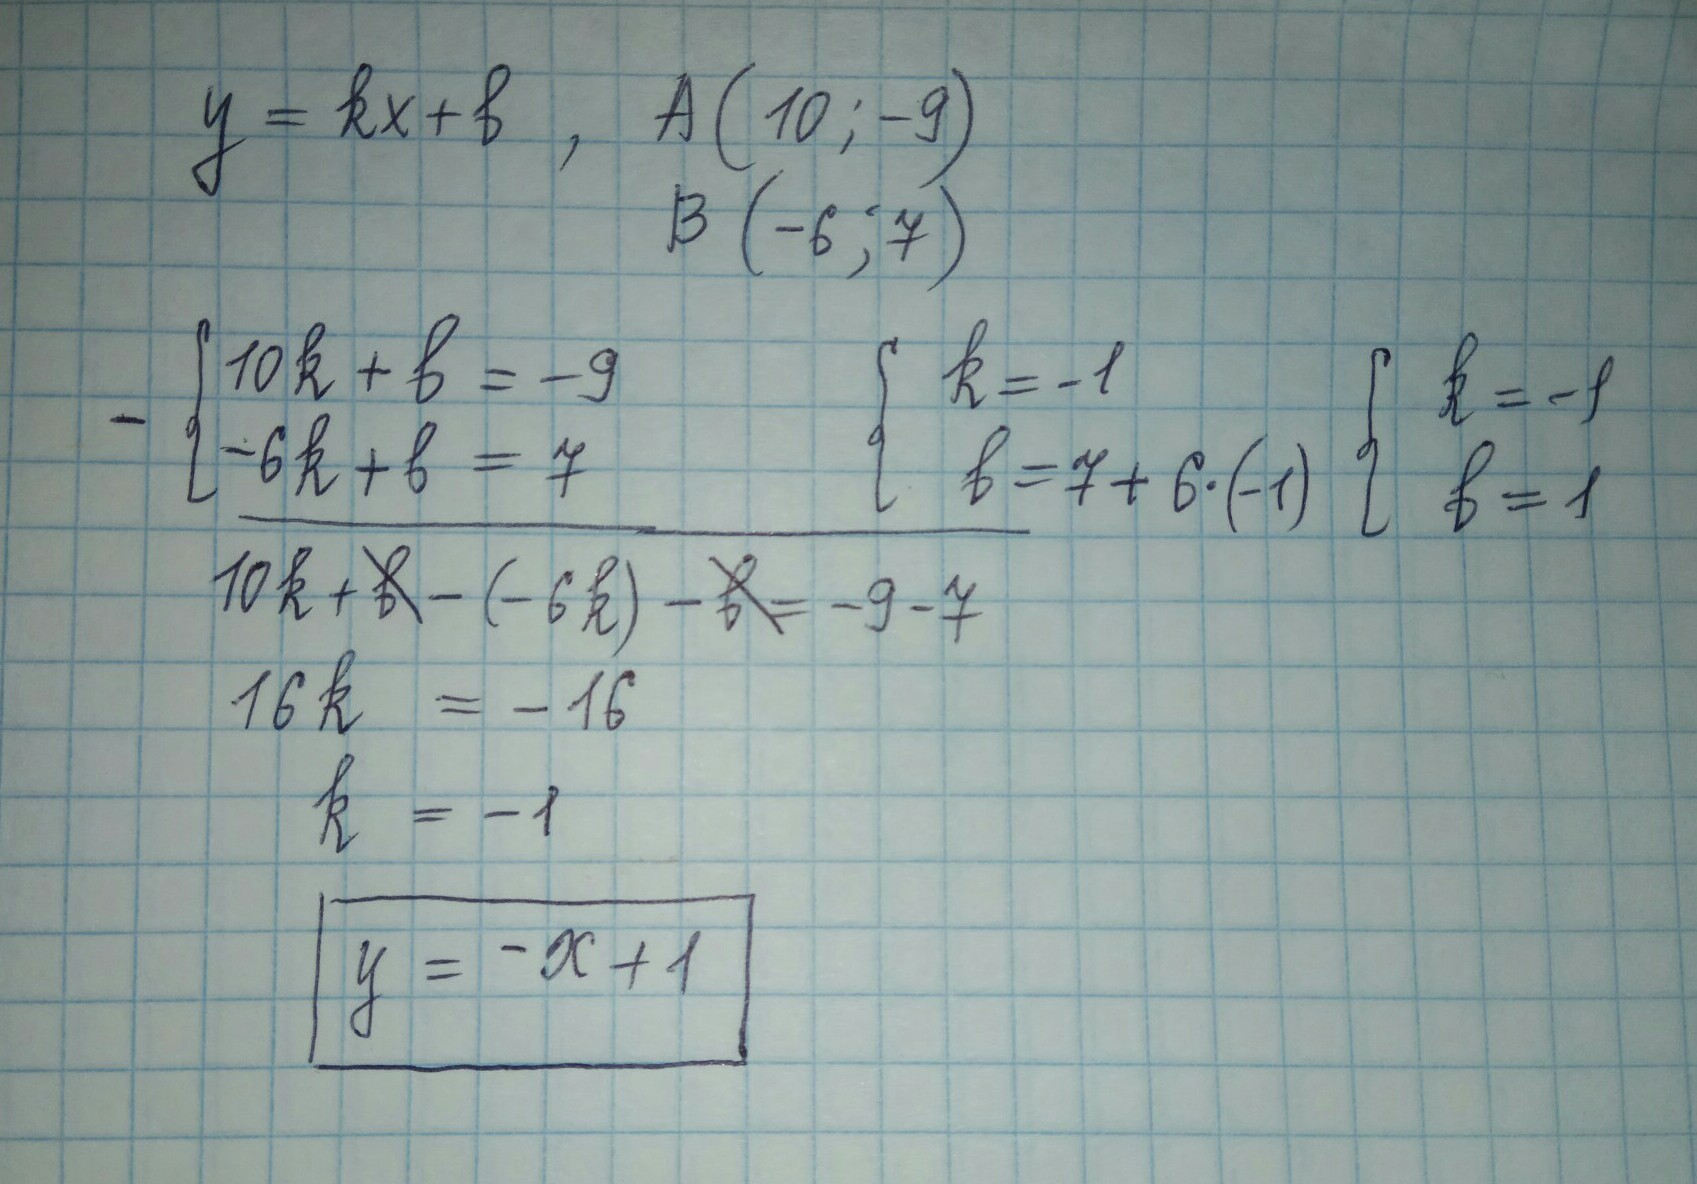 y = kx + b , A(10; -9)
B(-6; 7)
- { 10k + b = -9
-6k + b = 7
{ k = -1
b = 7 + 6·(-1)
{ k = -1
b = 1
10k + b - (-6k) - b = -9 - 7
16k = -16
k = -1
y = -x + 1